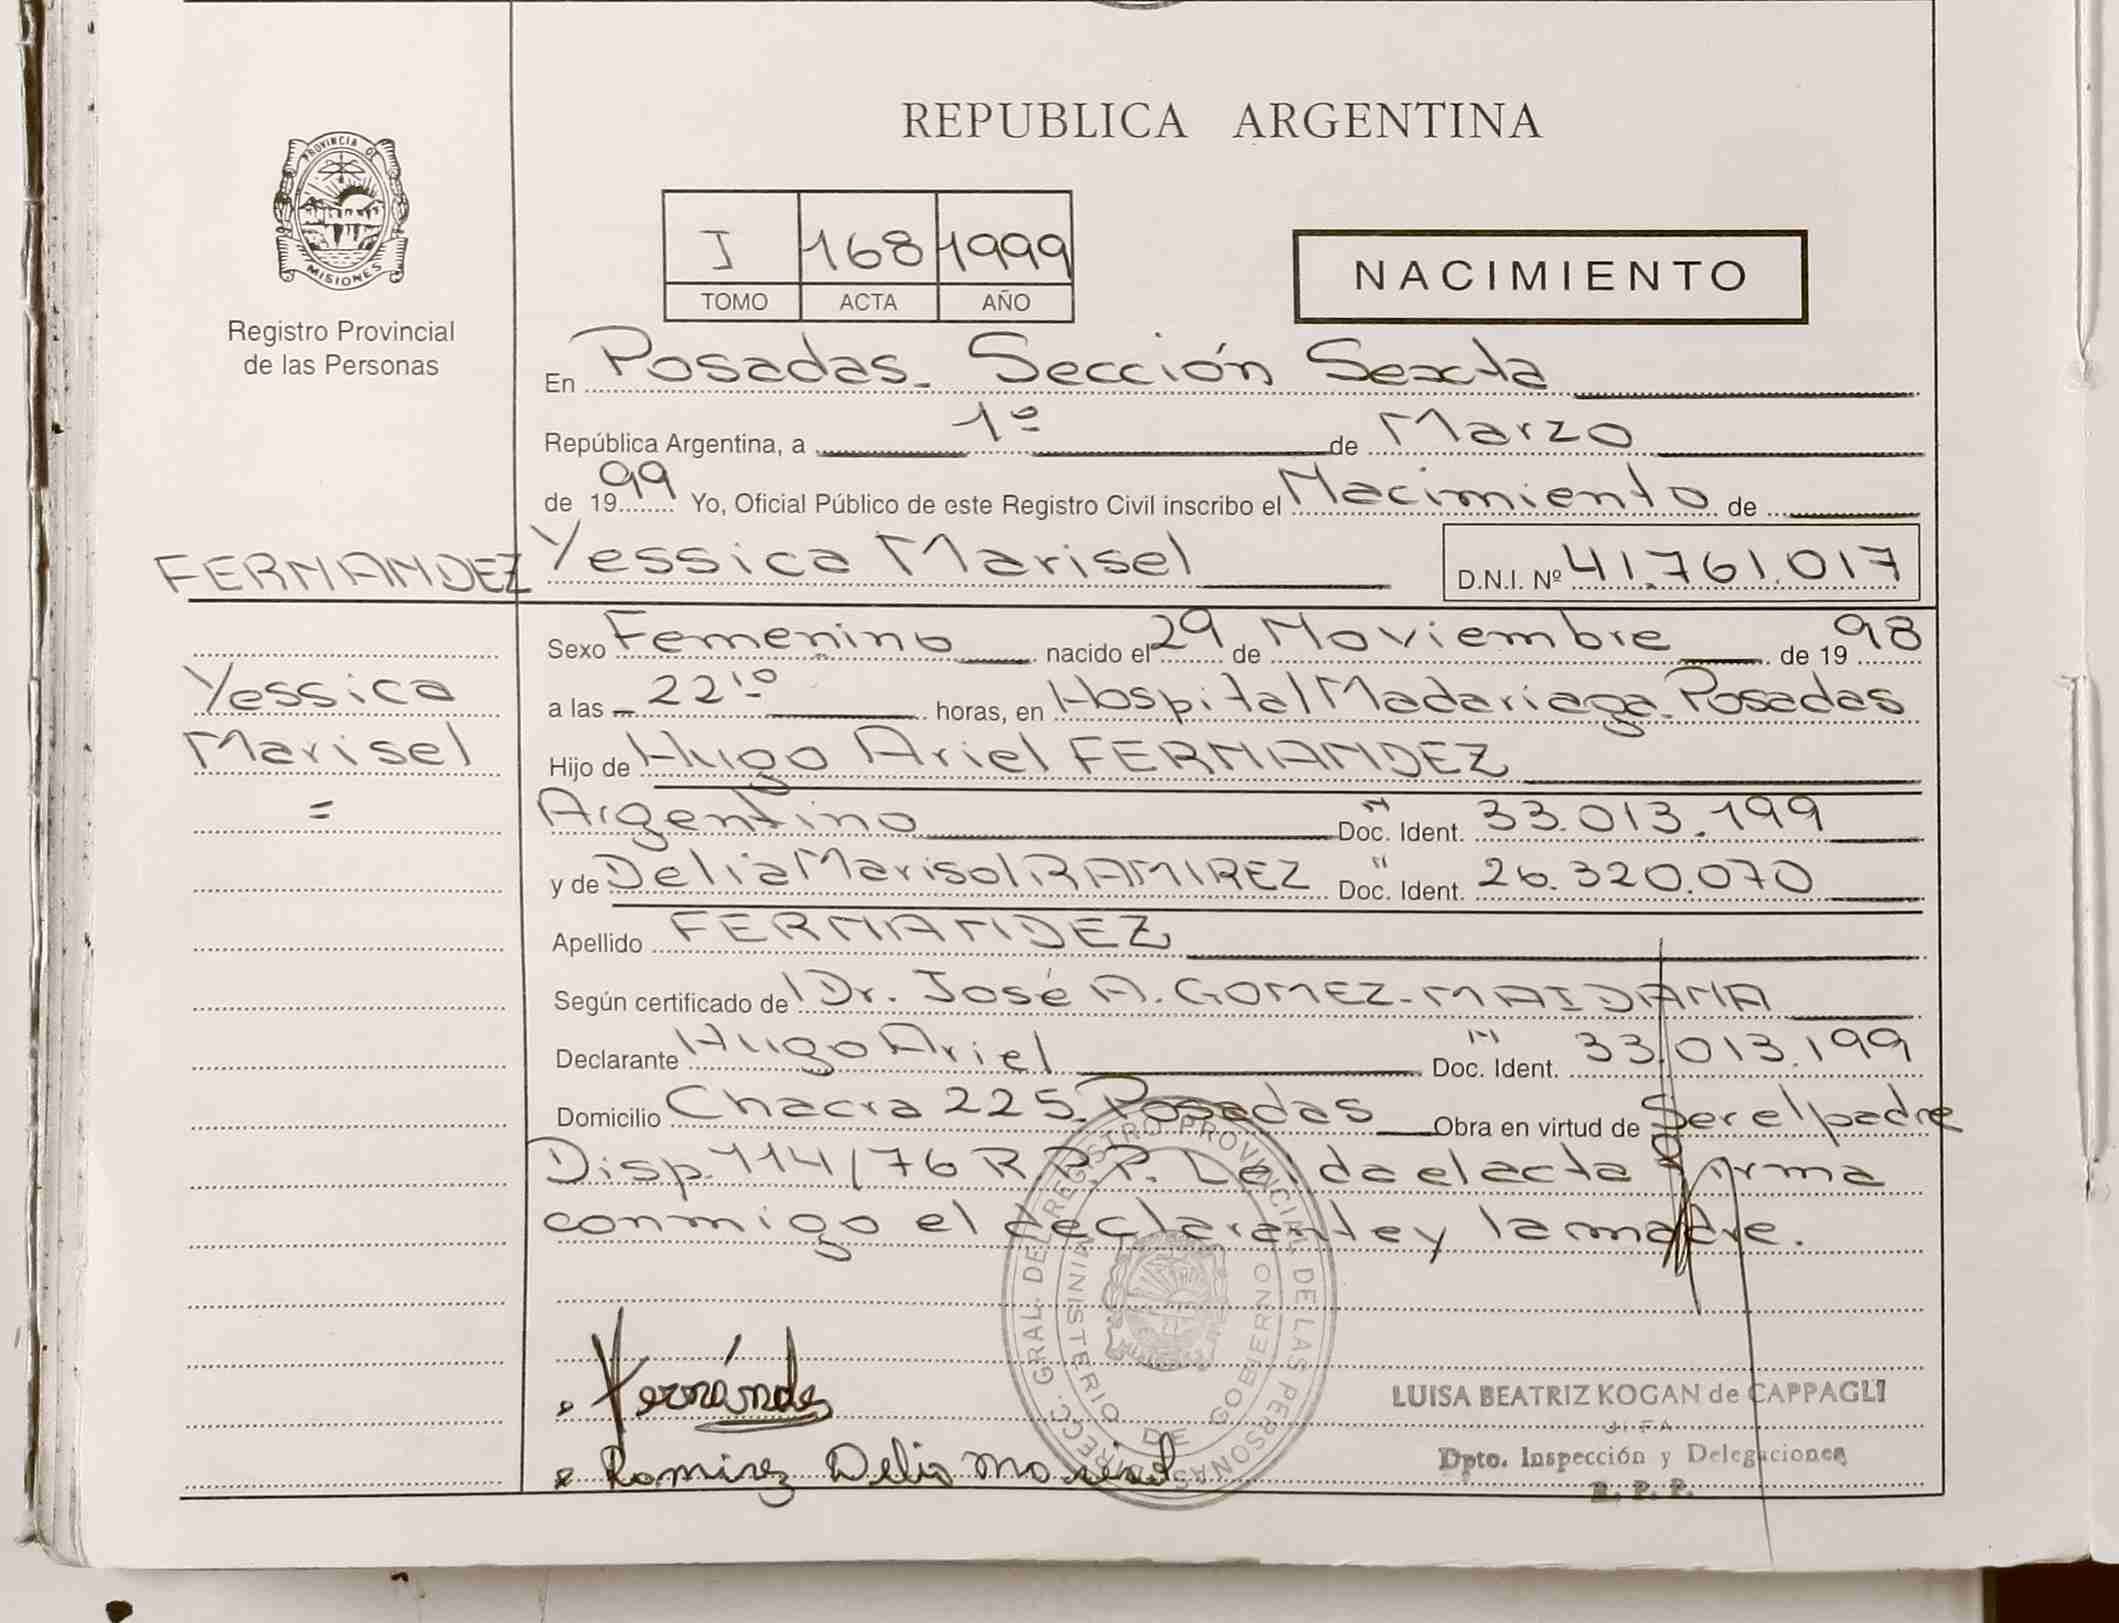 REPUBLICA ARGENTINA
PROVINCIA DE
MISIONES
Registro Provincial
de las Personas
I 168 1999
TOMO ACTA AÑO
NACIMIENTO
En Posadas. Sección Sexta
República Argentina, a 1º de Marzo
de 1999 Yo, Oficial Público de este Registro Civil inscribo el Nacimiento de
FERNANDEZ Yessica Marisel D.N.I. Nº 41.761.017
Sexo Femenino nacido el 29 de Noviembre de 1998
Yessica
a las 22,10 horas, en Hospital Madariaga. Posadas
Marisel
Hijo de Hugo Ariel FERNANDEZ
=
Argentino Doc. Ident. 33.013.199
y de Delia Marisol RAMIREZ Doc. Ident. 26.320.070
Apellido FERNANDEZ
Según certificado de Dr. José A. GOMEZ-MAIDANA
Declarante Hugo Ariel Doc. Ident. 33.013.199
Domicilio Chacra 225. Posadas Obra en virtud de Ser el padre
Disp. 114/76 R.P.P. Leída el acta firma
conmigo el declarante y la madre.
DIRECC. GRAL. DEL REGISTRO PROVINCIAL DE LAS PERSONAS
MINISTERIO DE GOBIERNO
Fernández
Ramirez Delia Marisol
LUISA BEATRIZ KOGAN de CAPPAGLI
JEFA
Dpto. Inspección y Delegaciones
R. P. P.